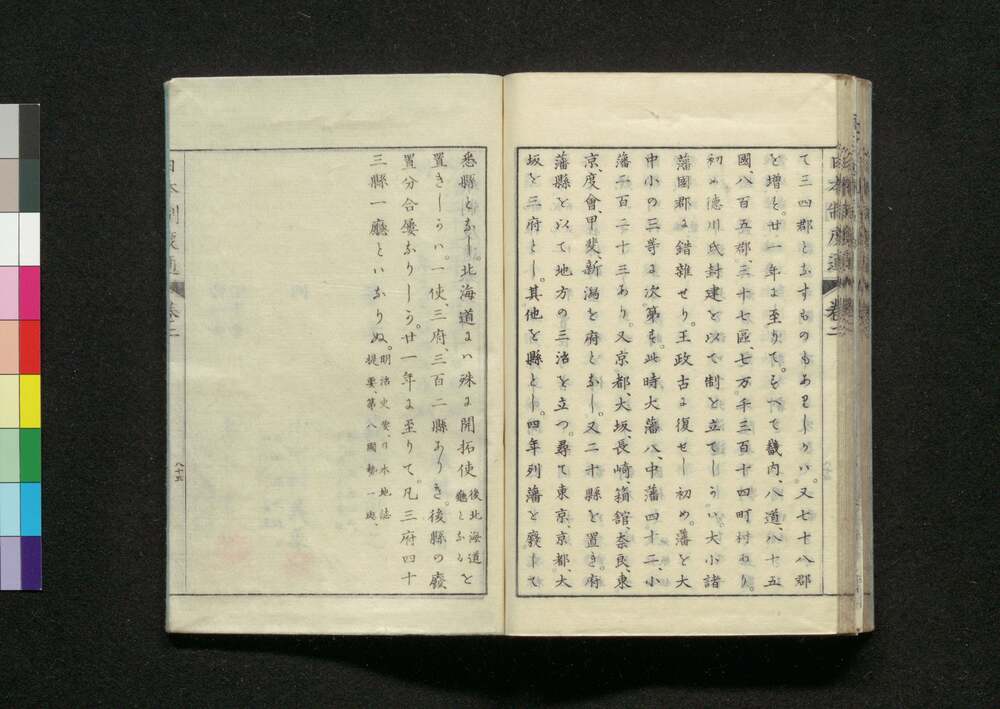 て三四郡となすものもありしかい。又七十八郡
と増を。廿一年に至りてをべて畿内、八道、八十五
國、八百五郡、三十七區、七万千三百十四町村なり。
初め德川氏封建を以て制を立てしうい。大小諸
藩國郡に錯雜せり。王政古に復せし初め。藩を大
中小の三等に次第を。此時大藩八、中藩四十二、小
藩二百二十三あり。又京都、大坂、長崎、箱館、奈良、東
京、度會、甲斐、新潟を府となし。又二十縣を置き。府
藩縣を以て地方の三治を立つ。尋て東京、京都、大
坂を三府とし。其他を縣とし。四年列藩を廢して
悉縣となし。北海道には殊に開拓使後北海道廳となるを
置きしうい。一使、三府、三百二縣あり き。後縣の廢
置分合屡なりしう。廿一年に至りて。凡三府四十
三縣一廳といなりぬ。明治史要、日本地誌提要第八國勢一斑、
日本制度通 卷二
八十五